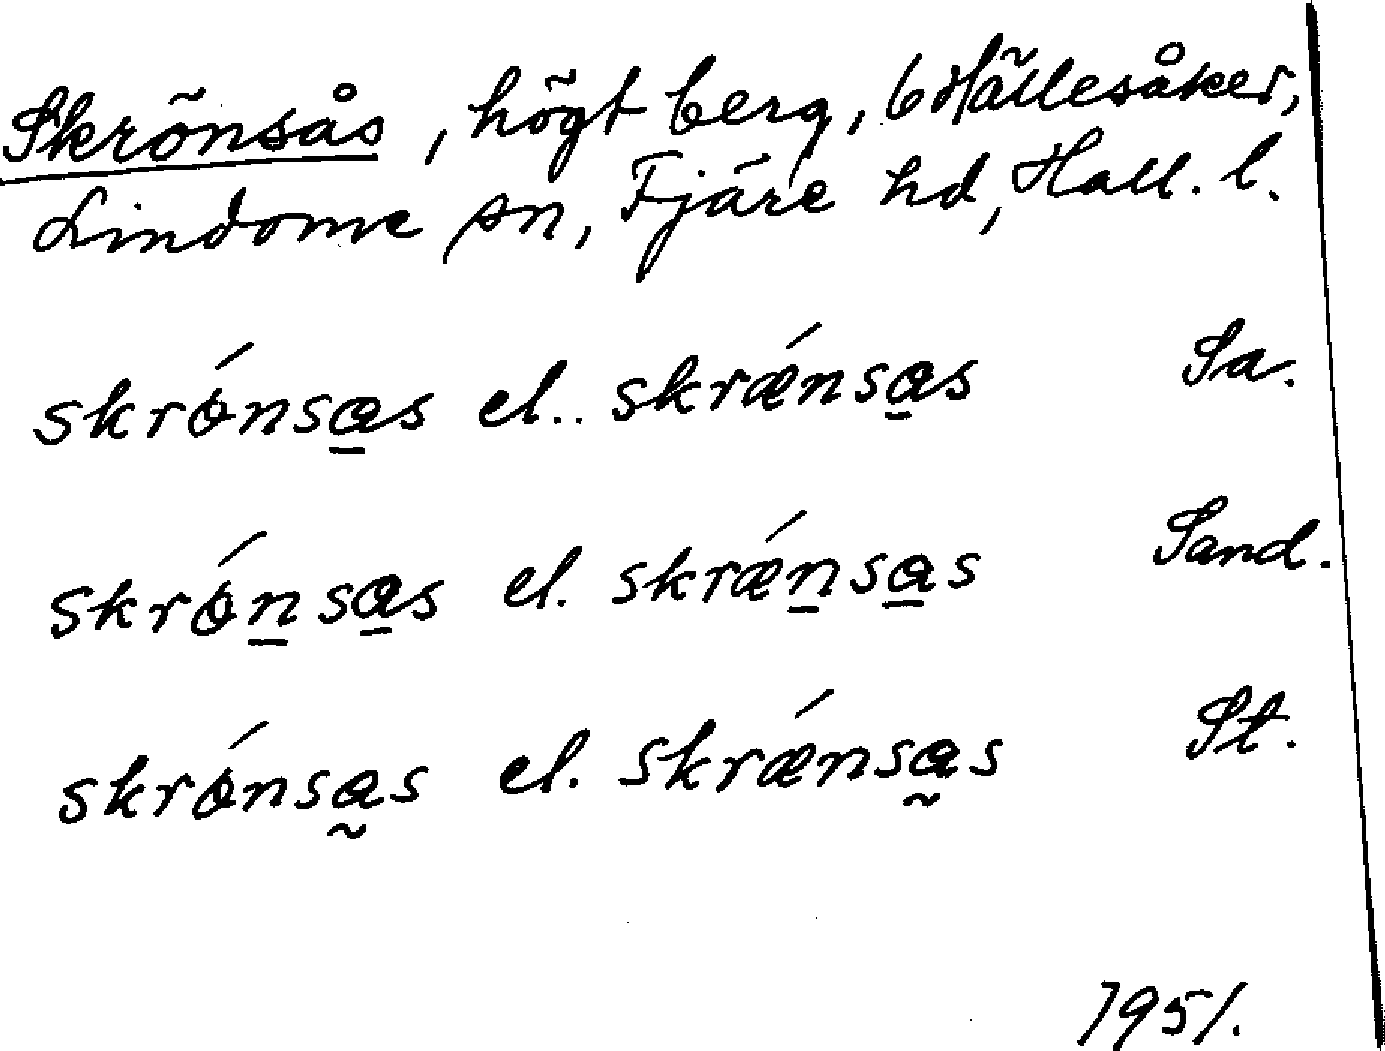 Skrönsås, högt berg, 6 Hällesåker,
Lindome sn, Fjäre hd, Hall. l.
skrǿnsa̲s el. skrǽnsa̲s Sa.
skrǿn̲sa̲s el. skrǽn̲sa̲s Sand.
skrǿnsa̰s el. skrǽnsa̰s St.
1951.